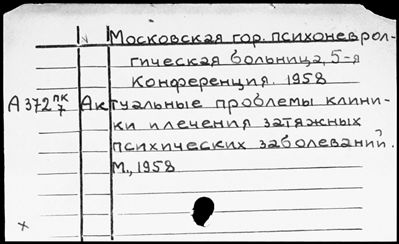 Московская гор. психоневрол-
гическая больница, 5-я
Конференция. 1958
А 372 пк/7 Актуальные проблемы клини-
ки илечения затяжных
психических заболеваний.
М., 1958
×